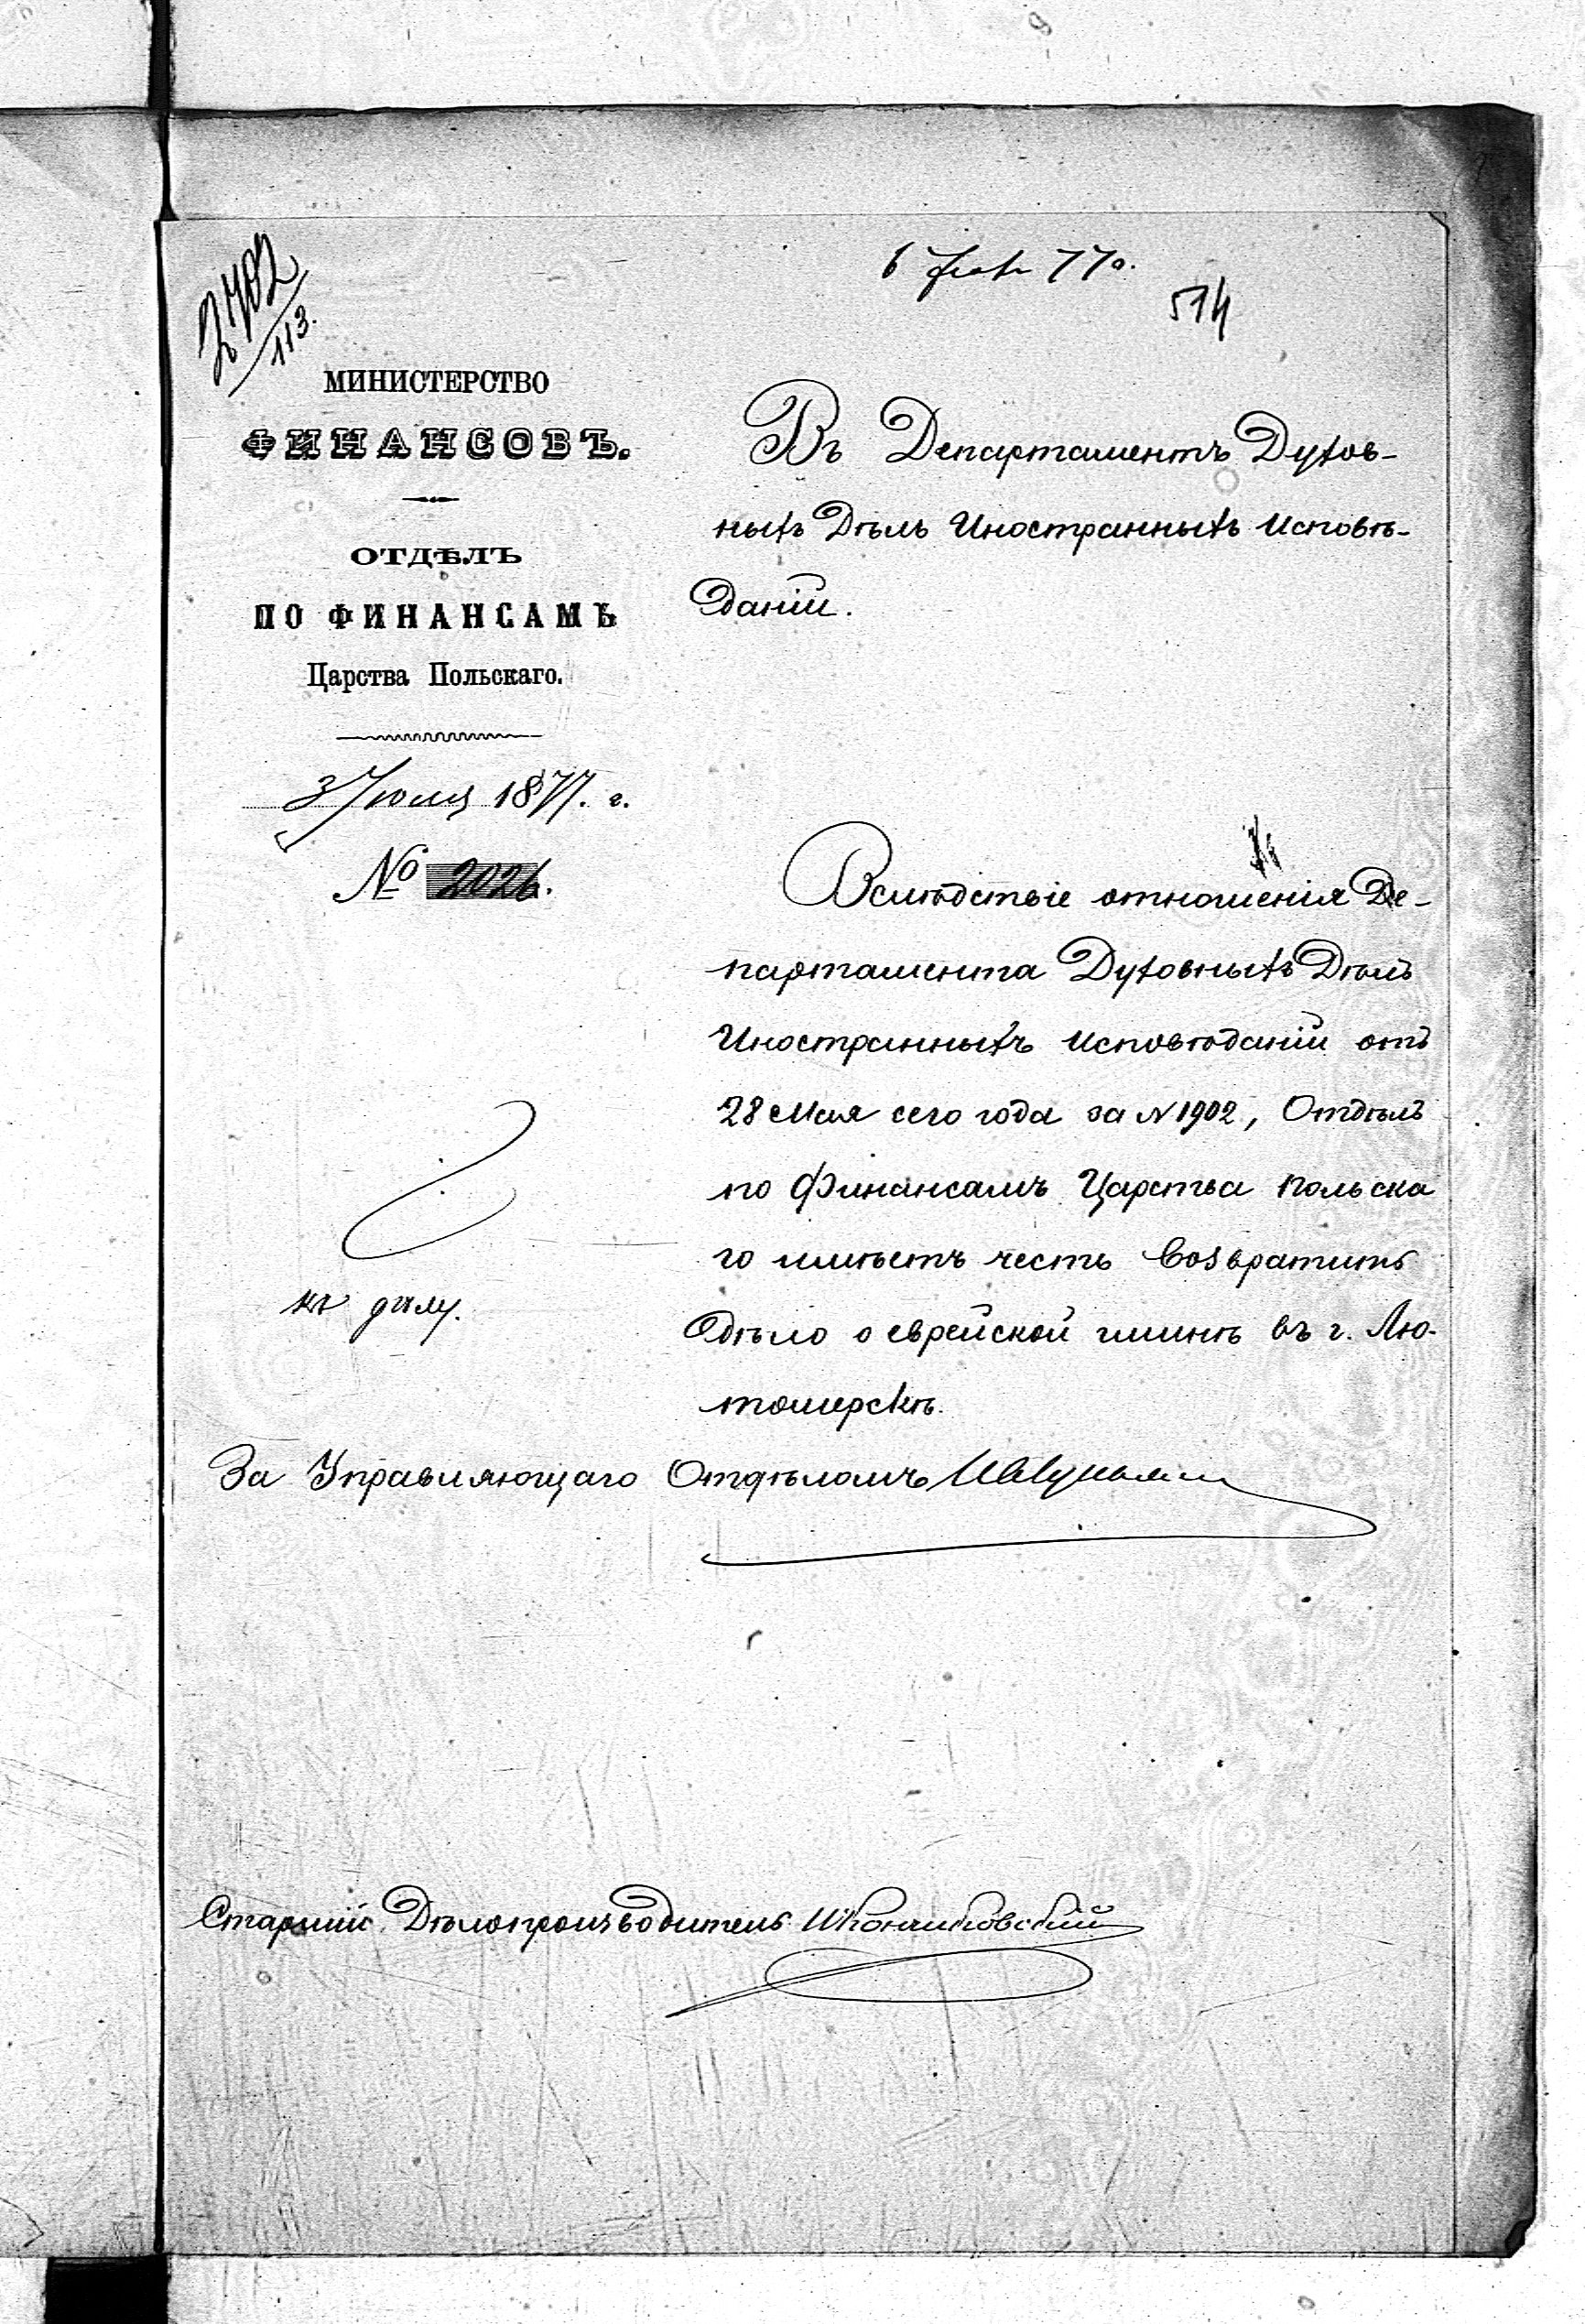 2702
113.
514
МИНИСТЕРСТВО
ФИНАНСОВЪ.
ОТДѢЛЪ
ПО ФИНАНСАМЪ
Царства Польскаго.
3 Июля 1877. г.
№ 2026.
Въ Департаментъ Духов-
ныхъ Дѣлъ Иностранныхъ Исповѣ-
даній.
Вслѣдствіе отношенія Де-
партамента Духовныхъ Дѣлъ
Иностранныхъ Исповѣданій отъ
28 Мая сего года за N 1902, Отдѣлъ
по Финансамъ Царства Польска
го имѣетъ честь возвратить
дѣло о еврейской гминѣ въ г. Лю-
томерскѣ.
къ дѣлу.
За Управляющаго Отдѣломъ
Старшій Дѣлопроизводитель